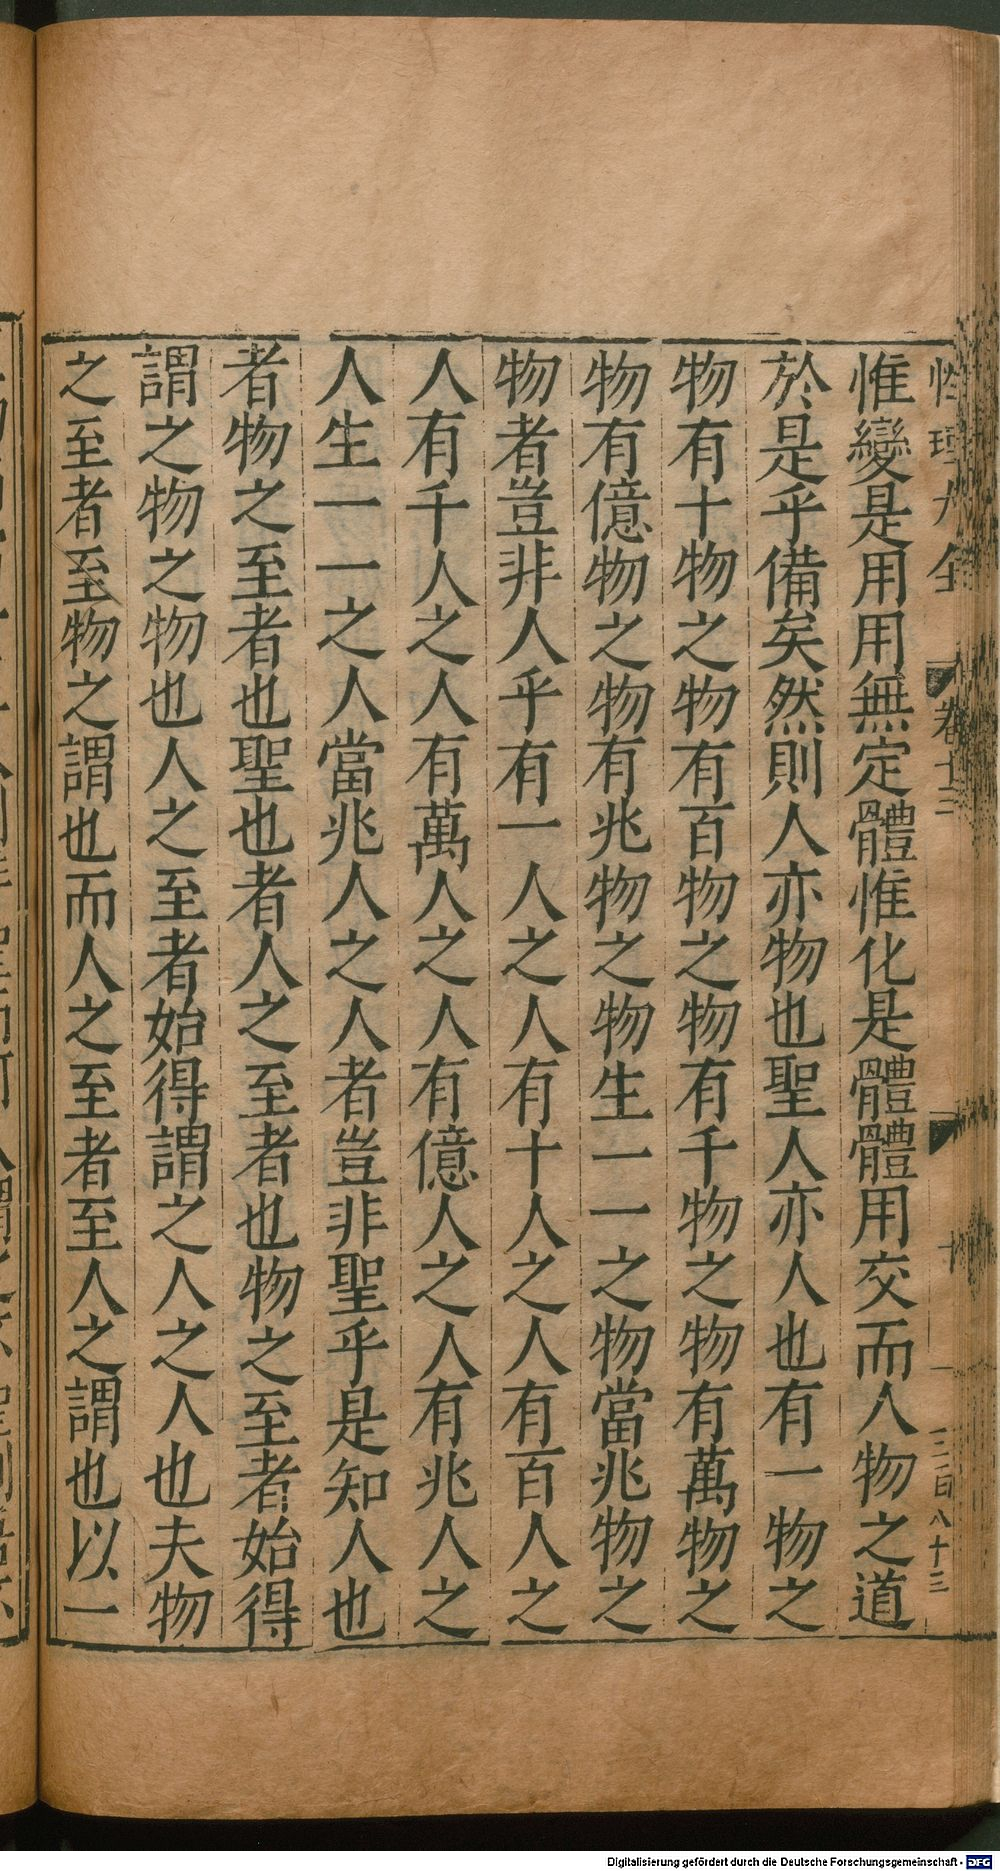 性理大全
卷十三
十
三百八十三
惟變是用用無定體惟化是體體用交而人物之道
於是乎備矣然則人亦物也聖人亦人也有一物之
物有十物之物有百物之物有千物之物有萬物之
物有億物之物有兆物之物生一一之物當兆物之
物者豈非人乎有一人之人有十人之人有百人之
人有千人之人有萬人之人有億人之人有兆人之
人生一一之人當兆人之人者豈非聖乎是知人也
者物之至者也聖也者人之至者也物之至者始得
謂之物之物也人之至者始得謂之人之人也夫物
之至者至物之謂也而人之至者至人之謂也以一
Digitalisierung gefördert durch die Deutsche Forschungsgemeinschaft - DFG